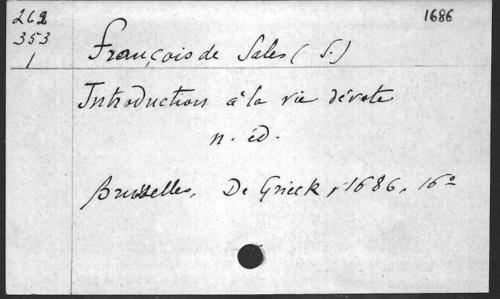 262
353
1
1686
François de Sales (S.)
Introduction à la vie dévote
n. éd.
Bruxelles, De Grieck, 1686, 16°